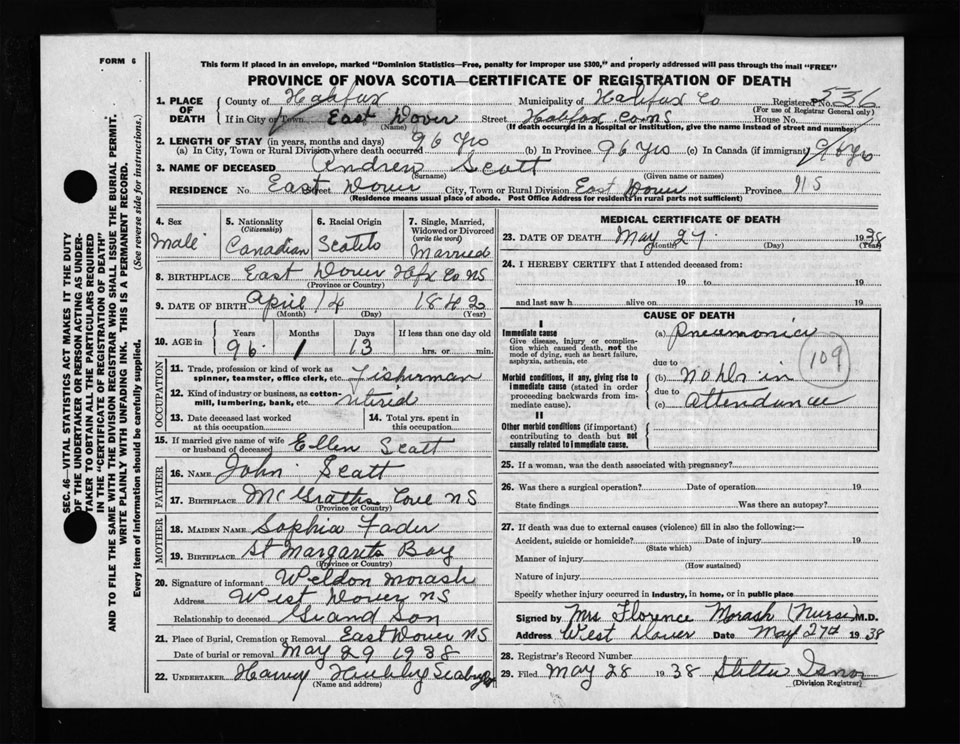 FORM 6
This form if placed in an envelope, marked "Dominion Statistics—Free, penalty for improper use $300," and properly addressed will pass through the mail "FREE"
PROVINCE OF NOVA SCOTIA—CERTIFICATE OF REGISTRATION OF DEATH
1. PLACE OF DEATH
County of Halifax Municipality of Halifax Co Registered No. 536
(For use of Registrar General only)
If in City or Town East Dover Street Halifax Co NS House No.
(Name) (If death occurred in a hospital or institution, give the name instead of street and number)
2. LENGTH OF STAY (in years, months and days)
(a) In City, Town or Rural Division where death occurred 96 Yrs (b) In Province 96 Yrs (c) In Canada (if immigrant) 96 Yrs
3. NAME OF DECEASED Andrew Scott
(Surname) (Given name or names)
RESIDENCE No. Street East Dover City, Town or Rural Division East Dover Province NS
(Residence means usual place of abode. Post Office Address for residents in rural parts not sufficient)
SEC. 46—VITAL STATISTICS ACT MAKES IT THE DUTY
OF THE UNDERTAKER OR PERSON ACTING AS UNDER-
TAKER TO OBTAIN ALL THE PARTICULARS REQUIRED
IN THE "CERTIFICATE OF REGISTRATION OF DEATH"
AND TO FILE THE SAME WITH THE DIVISION REGISTRAR WHO SHALL ISSUE THE BURIAL PERMIT.
WRITE PLAINLY WITH UNFADING INK. THIS IS A PERMANENT RECORD.
Every item of information should be carefully supplied. (See reverse side for instructions.)
4. Sex
Male
5. Nationality
(Citizenship)
Canadian
6. Racial Origin
7. Single, Married, Widowed or Divorced
(write the word)
Married
8. BIRTHPLACE East Dover Hfx Co NS
(Province or Country)
9. DATE OF BIRTH April 14 1842
(Month) (Day) (Year)
10. AGE in
Years Months Days If less than one day old
96 1 13 hrs. or min.
OCCUPATION
11. Trade, profession or kind of work as spinner, teamster, office clerk, etc. Fisherman
12. Kind of industry or business, as cotton-mill, lumbering, bank, etc. retired
13. Date deceased last worked at this occupation
14. Total yrs. spent in this occupation
15. If married give name of wife or husband of deceased Ellen Scott
FATHER
16. NAME John Scott
17. BIRTHPLACE McGraths Cove NS
(Province or Country)
MOTHER
18. MAIDEN NAME Sophia Fader
19. BIRTHPLACE St Margarets Bay
(Province or Country)
20. Signature of informant Weldon Morash
Address West Dover NS
Relationship to deceased Grand Son
21. Place of Burial, Cremation or Removal East Dover NS
Date of burial or removal May 29 1938
22. UNDERTAKER Harvey
(Name and address)
MEDICAL CERTIFICATE OF DEATH
23. DATE OF DEATH May 27 1938
(Month) (Day) (Year)
24. I HEREBY CERTIFY that I attended deceased from:
19 to 19
and last saw h alive on 19
CAUSE OF DEATH
I
Immediate cause
Give disease, injury or complication which caused death, not the mode of dying, such as heart failure, asphyxia, asthenia, etc
(a) Pneumonia
due to
109
Morbid conditions, if any, giving rise to immediate cause (stated in order proceeding backwards from immediate cause).
(b) no in
due to
(c) attendance
II
Other morbid conditions (if important) contributing to death but not causally related to immediate cause.
25. If a woman, was the death associated with pregnancy?
26. Was there a surgical operation? Date of operation 19
State findings Was there an autopsy?
27. If death was due to external causes (violence) fill in also the following:—
Accident, suicide or homicide? Date of injury 19
(State which)
Manner of injury
(How sustained)
Nature of injury
Specify whether injury occurred in industry, in home, or in public place
Signed by Mrs Florence Morash (Nurse) M.D.
Address West Dover Date May 27th 1938
28. Registrar's Record Number
29. Filed May 28 1938
(Division Registrar)